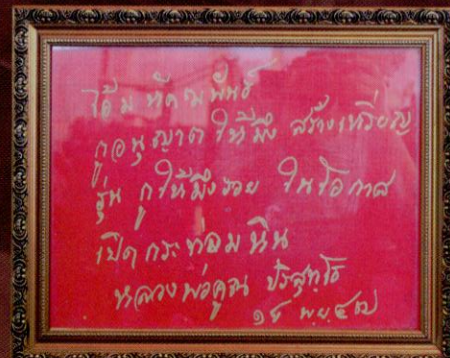 กูอนุญาต ให้มึง สร้างเหรียญ
รุ่น กูให้มึงรวย ในโอกาส
เปิด กระท่อมหิน
หลวงพ่อคูณ ปริสุทฺโธ
พ.ย. ๔๗